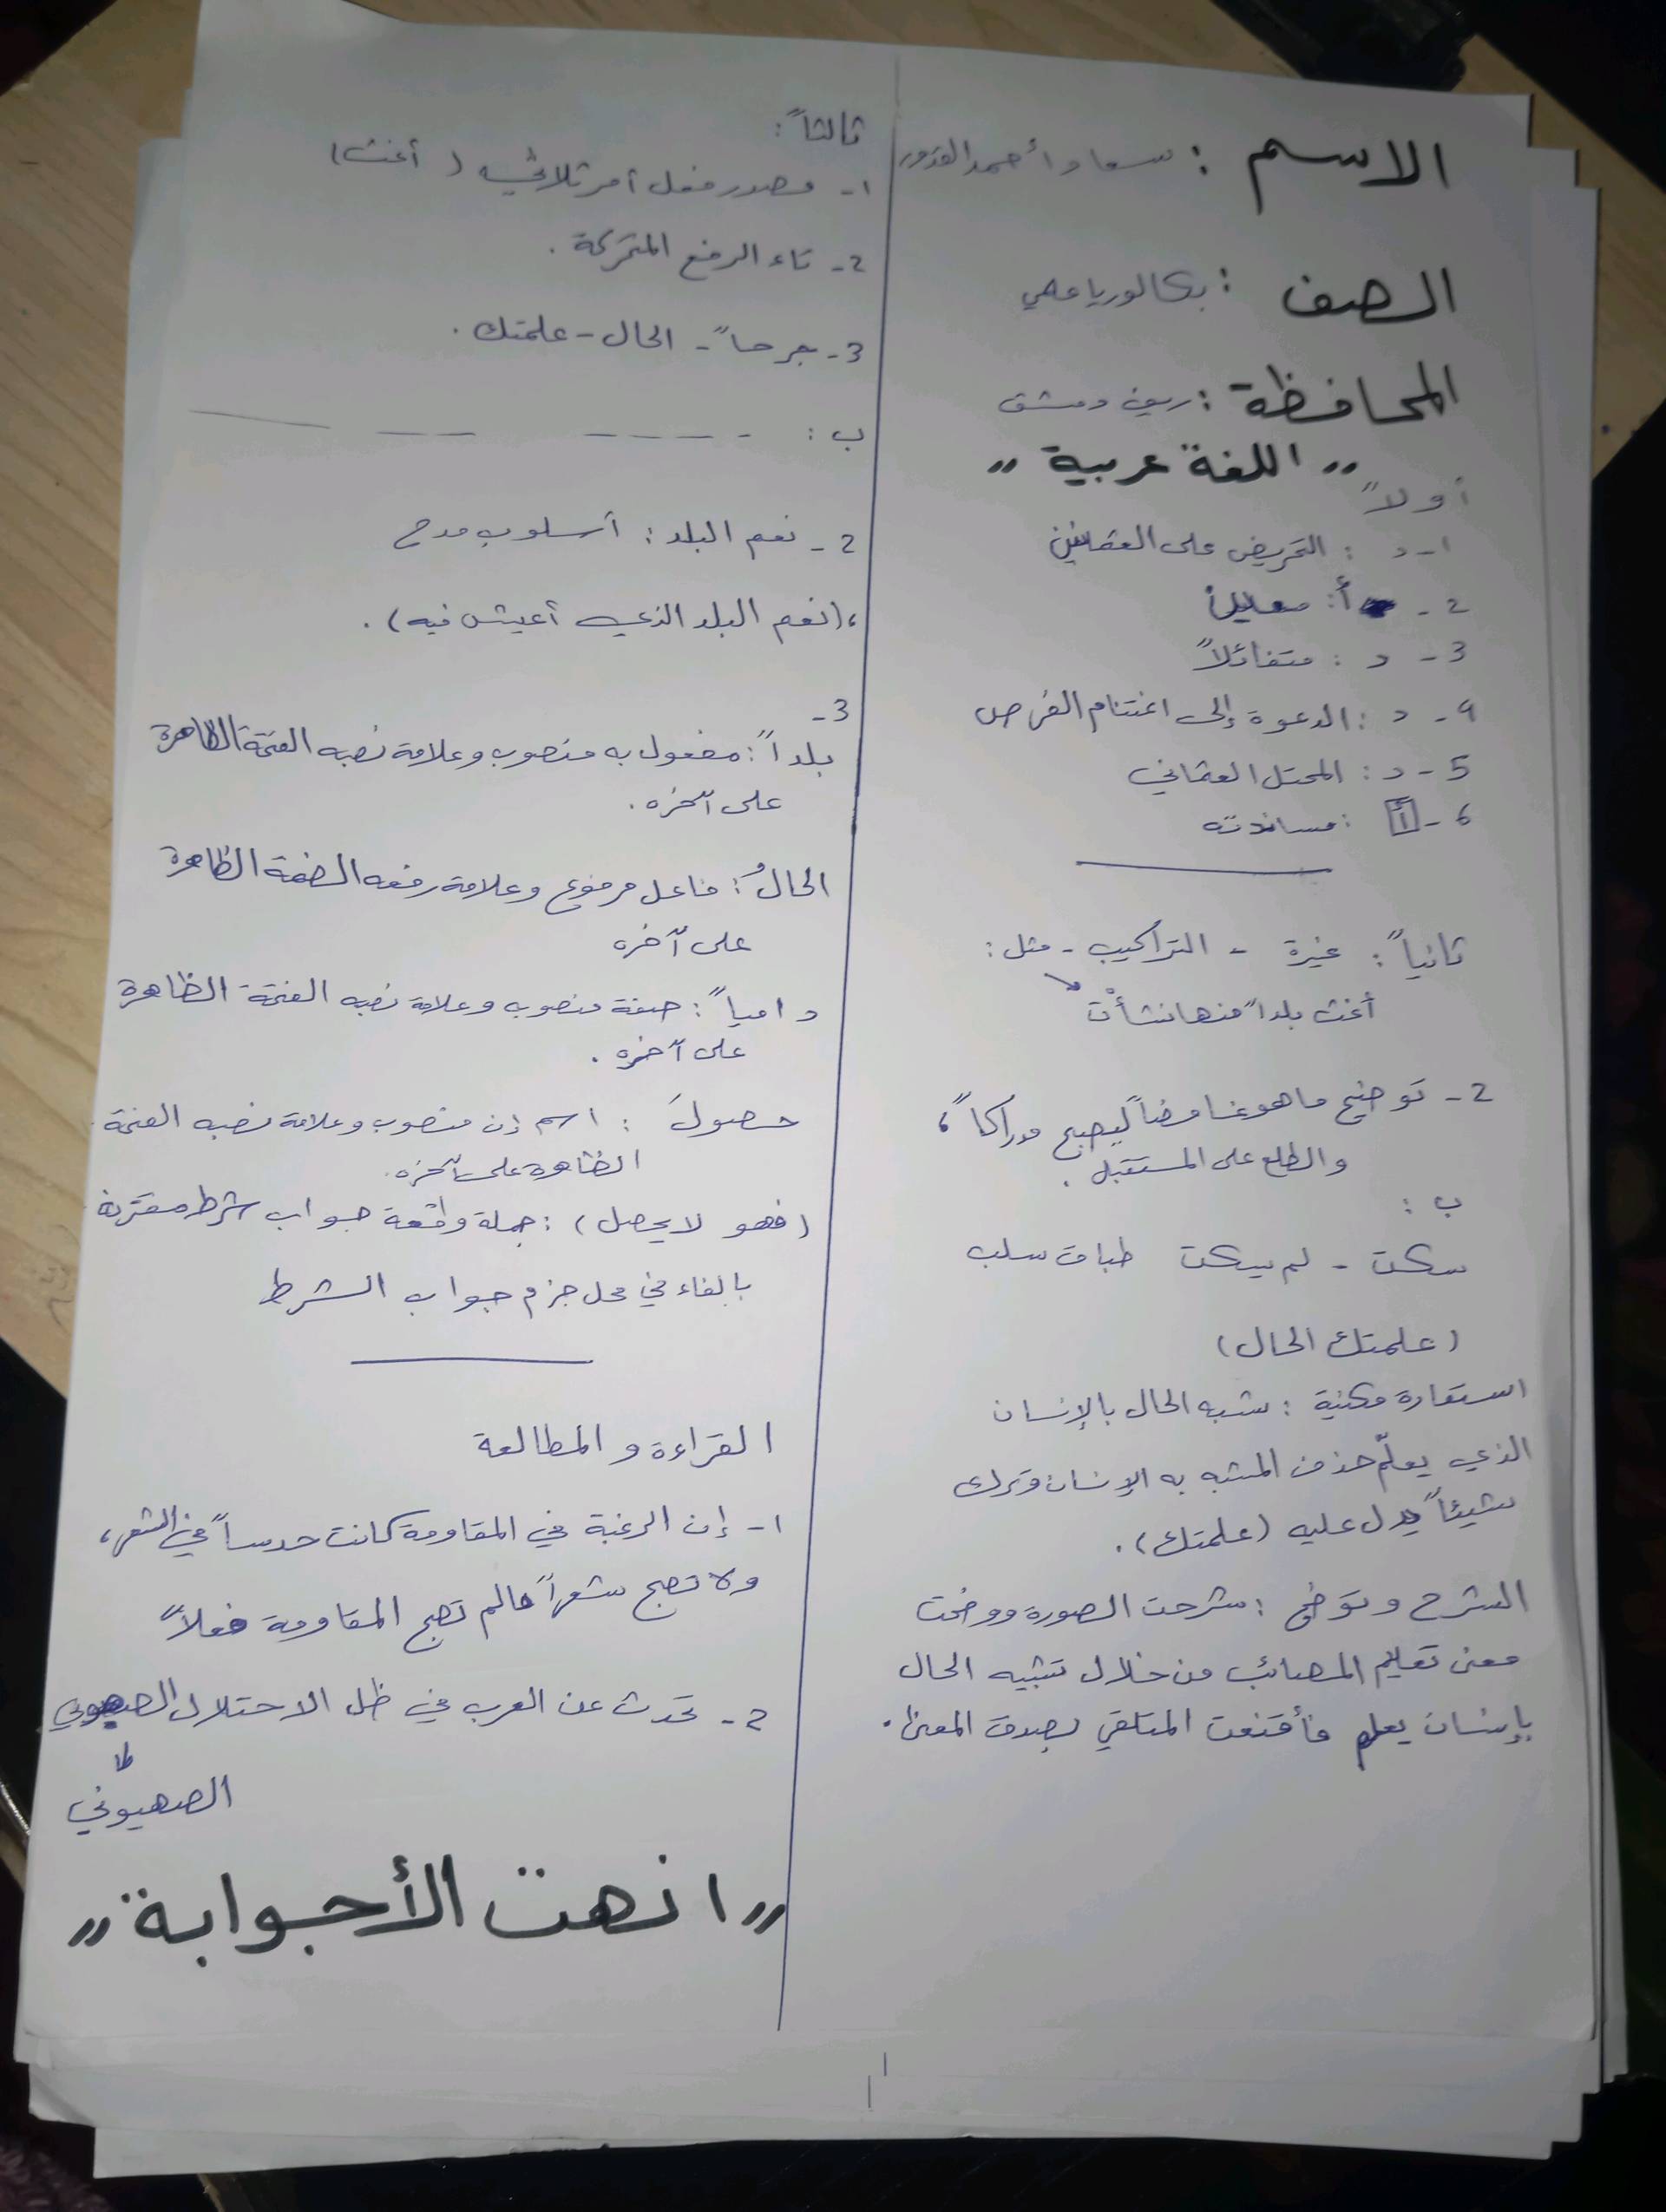 الاسم : سعاد أحمد القدور
الصف : بكالوريا علمي
المحافظة : ريف دمشق
,, اللغة عربية ,,
أولاً
1- د : التحريض على العثمانيين
2- أ: معين
3- د : متفائلاً
4- د : الدعوة إلى اغتنام الفرص
5- د : المحتل العثماني
6- أ : مساندته
ثانياً : غيرة - التراكيب - مثل :
أغث بلداً منها نشأت
2- توضيح ما هو غامضاً ليصبح مدركاً ،
والطلع على المستقبل .
ب :
سكت - لم يسكت طباق سلب
(علمتك الحال)
استعارة مكنية : شبه الحال بالإنسان
الذي يعلّم حذف المشبه به الإنسان وترك
شيئاً يدل عليه (علمتك) .
الشرح وتوضي : شرحت الصورة ووضحت
معنى تعليم المصائب من خلال تشبيه الحال
بإنسان يعلم فأقنعت المتلقي بصدق المعنى .
ثالثاً :
1- مصدر فعل أمر ثلاثي (أغث)
2- تاء الرفع المتحركة .
3- جرحاً - الحال - علمتك .
ب :
2- نعم البلد : أسلوب مدح
، (نعم البلد الذي أعيش فيه) .
3-
بلداً : مفعول به منصوب وعلامة نصبه الفتحة الظاهرة
على آخره .
الحالُ : فاعل مرفوع وعلامة رفعه الضمة الظاهرة
على آخره
دامياً : صفة منصوب وعلامة نصبه الفتحة الظاهرة
على آخره .
حصولَ : اسم إن منصوب وعلامة نصبه الفتحة
الظاهرة على آخره .
(فهو لا يحصل) : جملة واقعة جواب شرط مقترنة
بالفاء في محل جزم جواب الشرط
القراءة والمطالعة
1- إن الرغبة في المقاومة كانت حدساً في الشعر ،
ولا تصبح شعراً مالم تصبح المقاومة فعلاً
2- تحدث عن العرب في ظل الاحتلال
الصهيوني
,, انهت الأجوابة ,,